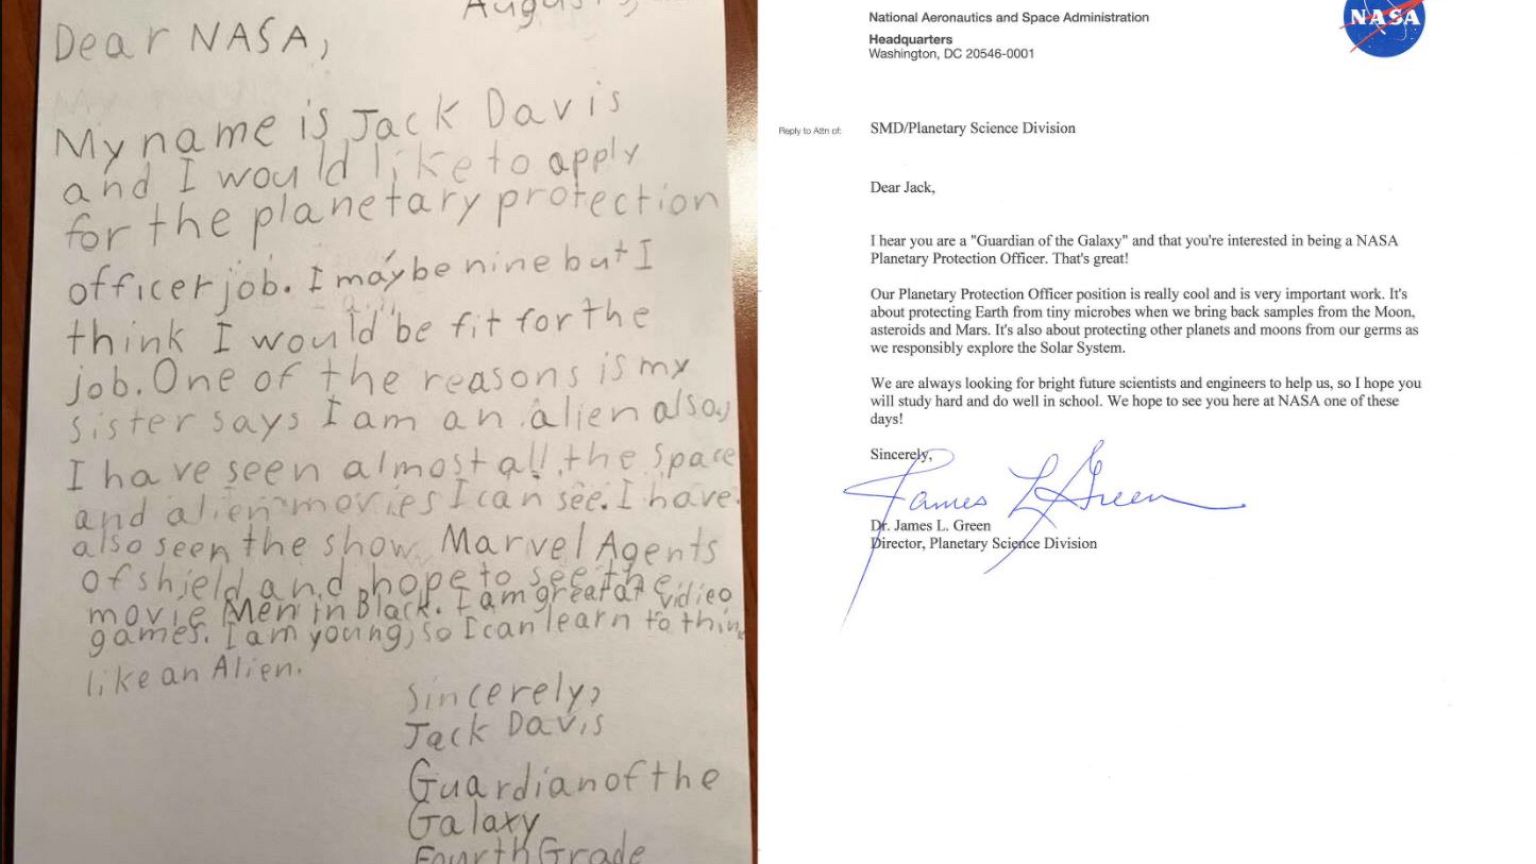 August
Dear NASA,
My name is Jack Davis
and I would like to apply
for the planetary protection
officer job. I may be nine but I
think I would be fit for the
job. One of the reasons is my
sister says I am an alien also,
I have seen almost all the space
and alien movies I can see. I have
also seen the show Marvel Agents
of shield and hope to see the
movie Men in Black. I am great at vidieo
games. I am young, so I can learn to think
like an Alien.
Sincerely,
Jack Davis
Guardian of the
Galaxy
Fourth Grade
National Aeronautics and Space Administration
Headquarters
Washington, DC 20546-0001
NASA
Reply to Attn of:
SMD/Planetary Science Division
Dear Jack,
I hear you are a "Guardian of the Galaxy" and that you're interested in being a NASA
Planetary Protection Officer. That's great!
Our Planetary Protection Officer position is really cool and is very important work. It's
about protecting Earth from tiny microbes when we bring back samples from the Moon,
asteroids and Mars. It's also about protecting other planets and moons from our germs as
we responsibly explore the Solar System.
We are always looking for bright future scientists and engineers to help us, so I hope you
will study hard and do well in school. We hope to see you here at NASA one of these
days!
Sincerely,
James L Green
Dr. James L. Green
Director, Planetary Science Division